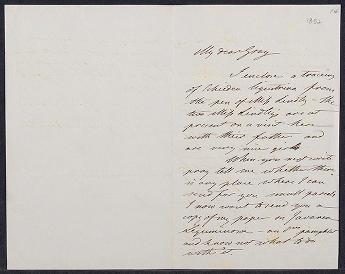 1852
My dear Gray
I enclose a tracing
of Schiedea ligustrina from
the pen of Miss Lindley - the
two Miss Lindleys are at
present on a visit here
with their father and
are very nice girls
When you next write
pray tell me whether there
is any place where I can
send for you small parcels
I now want to send you a
copy of my paper on Javanese
Leguminosae - an 8vo pamphlet
and know not what to do
with it.